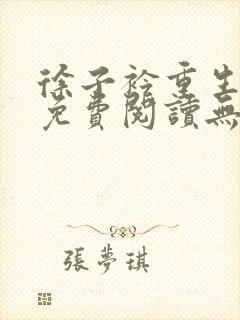 徐子衿重生
免費閱讀無
張夢琪